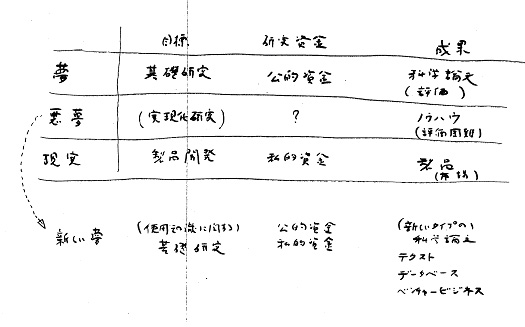 目標 研究資金 成果
夢 基礎研究 公的資金 科学論文
(評価)
悪夢 (実現化研究) ? ノウハウ
(評価困難)
現実 製品開発 私的資金 製品
(市場)
新しい夢 (使用知識に関する) 公的資金 (新しいタイプの)
基礎研究 私的資金 科学論文
テクスト
データベース
ベンチャービジネス